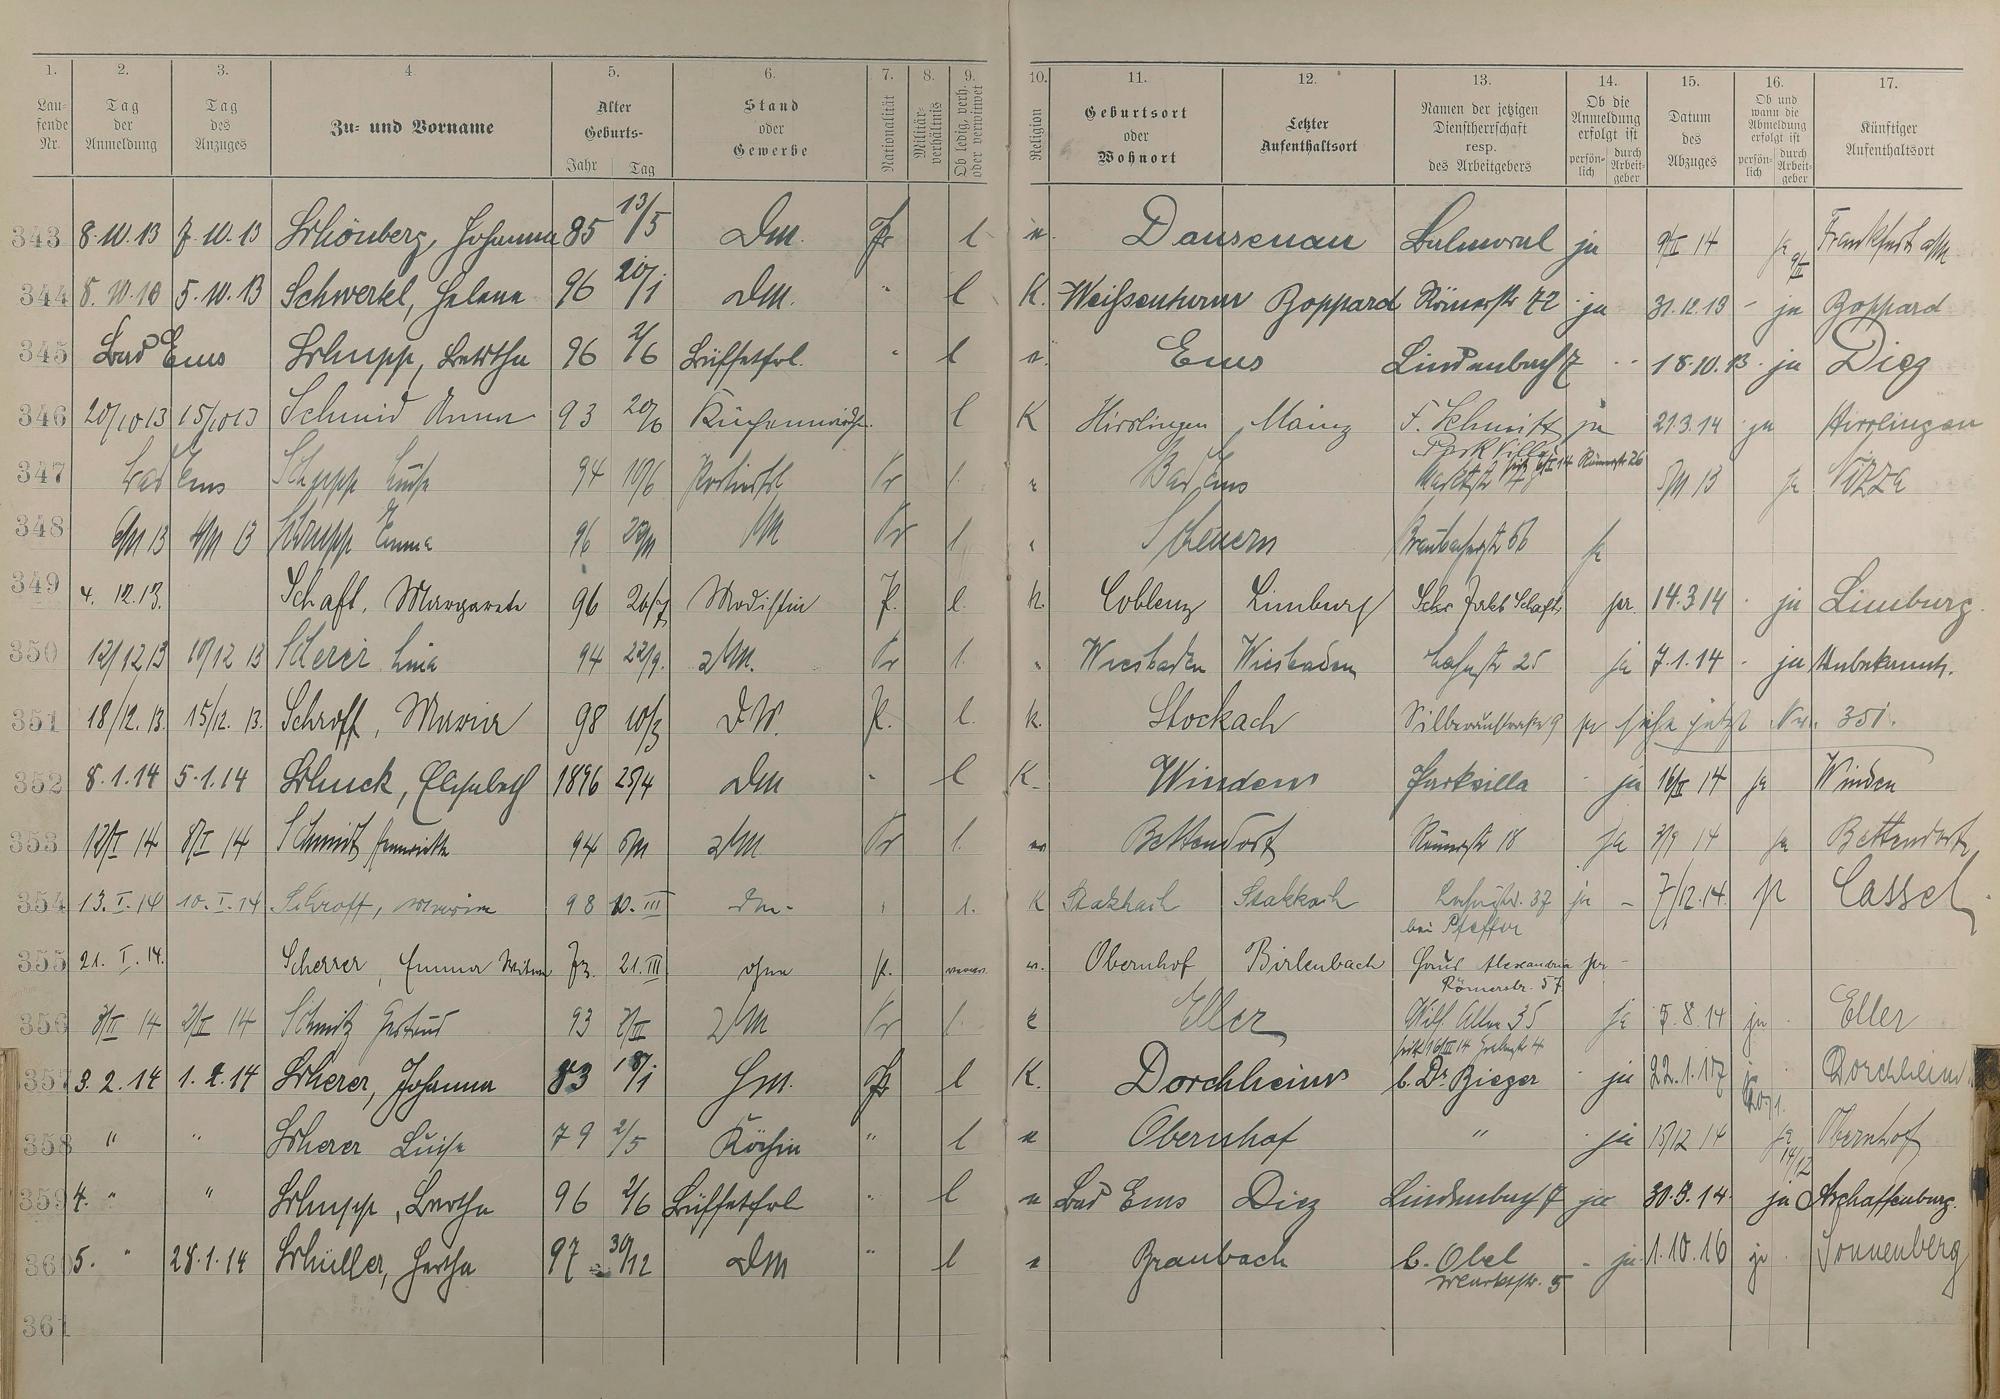 1. 2. 3. 4. 5. 6. 7. 8. 9. 10. 11. 12. 13. 14. 15. 16. 17.
Lau-
fende
Nr.
Tag
der
Anmeldung
Tag
des
Anzuges
Zu- und Vorname
Alter
Geburts-
Jahr Tag
Stand
oder
Gewerbe
Nationalität
Militär-
verhältnis
Ob ledig, verh.
oder verwitwet
Religion
Geburtsort
oder
Wohnort
Letzter
Aufenthaltsort
Namen der jetzigen
Dienstherrschaft
resp.
des Arbeitgebers
Ob die
Anmeldung
erfolgt ist
persön-
lich
durch
Arbeit-
geber
Datum
des
Abzuges
Ob und
wann die
Abmeldung
erfolgt ist
persön-
lich
durch
Arbeit-
geber
Künftiger
Aufenthaltsort
343 8.10.13 7.10.13 Schönberg, Johanna 85 13/5 Dm. Pr l Dausenau Balmoral ja 14 Frankfurt a/M
344 8.10.13 5.10.13 Schwerkel, Helene 96 20/1 Dm. " l K. Weißenturm Boppard Römerstr 72 ja 31.12.13 - ja Boppard
345 Bad Ems Schupp, Bertha 96 2/6 Büffetfrl. " l Ems Lindenbach 7 18.10.13 ja Diez
346 20/10 13 15/10 13 Schmid Anna 93 20/6 l K Hirrlingen Mainz F. Schmitz ja 21.3.14 ja Hirrlingen
Park Villa
347 Bad Ems Schupp Luise 94 10/6 Pr l. Bad Ems 13 ja Nizza
348 6/11 13 4/11 13 Schrupp Emma 96 DM Pr l. Scheuern Braubacherstr 66 ja
349 4. 12. 13. Schaft, Margarete 96 26/7 Modistin P. l. k. Coblenz Limburg Jakob Schaft pr. 14.3 14 ja Limburg.
350 12/12 13 10/12 13 Scherer Lina 94 22/9. DM. Pr l. Wiesbaden Wiesbaden Lahnstr 25 ja 7.1.14 - ja Unbekannt.
351 18/12.13. 15/12.13. Schroff, Maria 98 10/3 D.M. P. l. k. Stockach Silberaustraße 9 pr siehe jetzt Nr. 351.
352 8.1.14 5.1.14 Schuck, Elisabeth 1896 25/4 Dm " l K. Winden Parkvilla ja 14 ja Winden
353 12/I 14 8/I 14 Schmitz Henriette 94 DM Pr l. Bettendorf Römerstr 18 ja 3/9 14 ja Bettendorf
354 13.I.14 10.I.14 Schroff, Maria 98 10.III Dm. " l. K Stokkach Stokkach Lahnstr. 37 ja - 7/12.14. pr Cassel.
bei Pfeffer
355 21. I. 14. Scherrer, Emma Witwe 73. 21.III ohne P. Obernhof Birlenbach Haus Alexandria pr -
Römerstr. 57
356 3/II 14 2/II 14 Schmitz Gertrud 93 DM Pr l. Eller Wilh. Allee 35 ja 5.8.14 ja Eller
357 3.2.14 1.2.14 Scherer, Johanna 83 18/1 Hm. Pr l K. Dorchheim b. Dr Bieger ja 22.1.17 Dorchheim
358 " " Scherer Luise 79 2/5 Köchin " l Obernhof " ja 15/12 14 ja 14/12 Obernhof
359 4. " " Schupp, Bertha 96 2/6 Büffetfrl " l Bad Ems Diez Lindenbach 7 ja 30.3.14 ja Aschaffenburg.
360 5. " 28.1.14 Schüller, Hertha 97 30/12 Dm " l Braubach b. Obel ja 1.10.16 ja Sonnenberg
Marktstr. 5
361